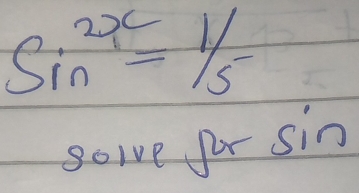 Sin^2x = 1/5
solve for sin